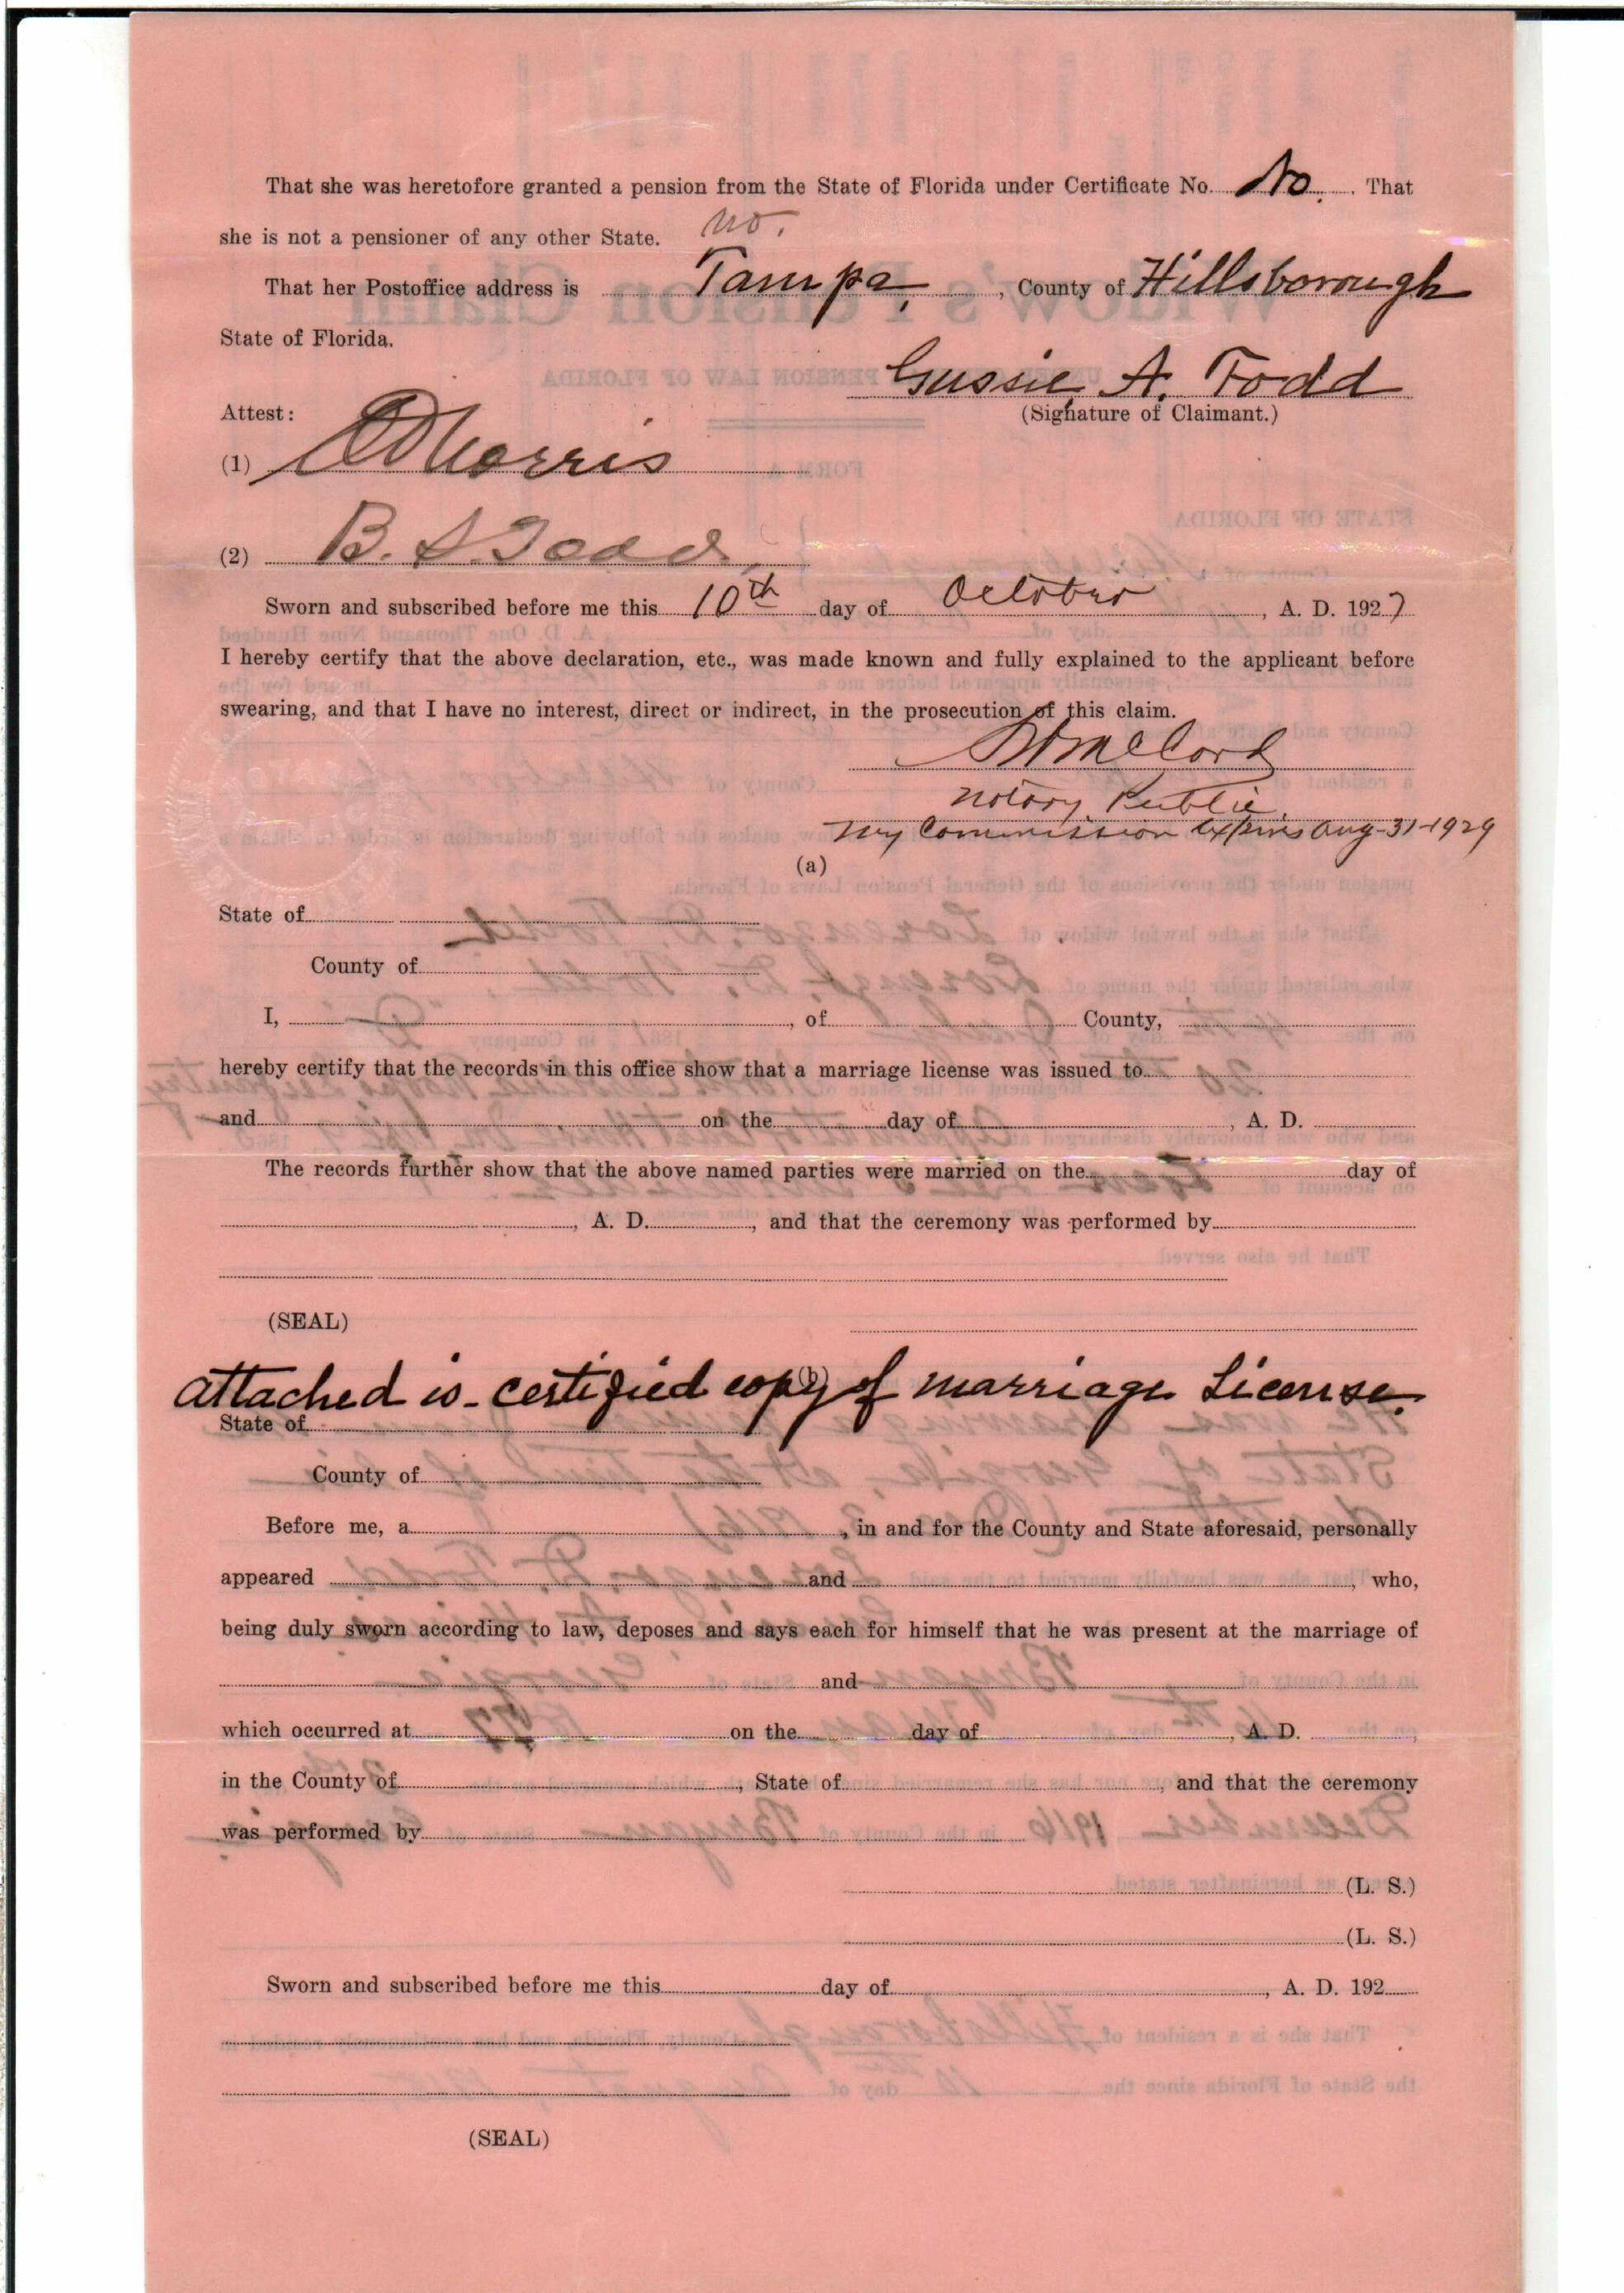 That she was heretofore granted a pension from the State of Florida under Certificate No. No. That
she is not a pensioner of any other State. no.
That her Postoffice address is Tampa, County of Hillsborough
State of Florida.
Gussie A. Todd
Attest: (Signature of Claimant.)
(1) Morris
(2) B. S. Todd
Sworn and subscribed before me this 10th day of October, A. D. 1927
I hereby certify that the above declaration, etc., was made known and fully explained to the applicant before
swearing, and that I have no interest, direct or indirect, in the prosecution of this claim.
Notary Public
My Commission Expires Aug-31-1929
(a)
State of
County of
I, , of County,
hereby certify that the records in this office show that a marriage license was issued to
and on the day of , A. D.
The records further show that the above named parties were married on the day of
, A. D. , and that the ceremony was performed by
(SEAL)
(b)
attached is - certified copy of marriage License.
State of
County of
Before me, a , in and for the County and State aforesaid, personally
appeared and , who,
being duly sworn according to law, deposes and says each for himself that he was present at the marriage of
and
which occurred at on the day of , A. D. ,
in the County of , State of , and that the ceremony
was performed by
(L. S.)
(L. S.)
Sworn and subscribed before me this day of , A. D. 192
(SEAL)